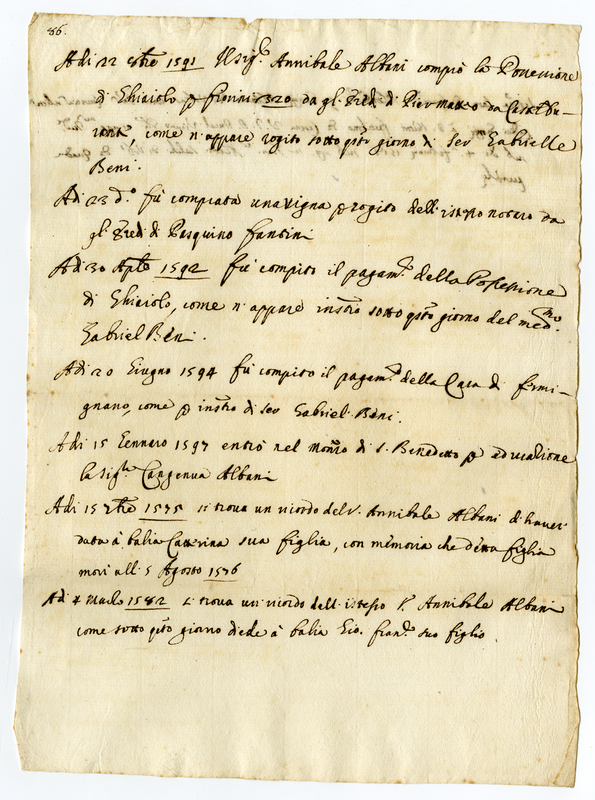 86.
Adi 22 8bre 1591 Il sig.r Annibale Albani comprò la Possessione
di Ghiaiolo p fiorini 1320 da gl' Eredi di Pier Matteo da Casteldu-
rante, come n'appare rogito sotto qsto giorno di Ser Gabrielle
Beni.
Adi 23 d.o fù comprata una vigna p rogito dell'istesso notaro da
gl' Eredi di Pasquino Fantini
Adi 30 Aple 1592 fù compito il pagam.to della Possessione
di Ghiaiolo, come n'appare instro sotto qsto giorno del med.mo
Gabriel Beni.
Adi 20 Giugno 1594 fù compito il pagam.to della Casa di Fermi-
gnano, come p instro di ser Gabriel Beni.
Adi 15 Gennaro 1597 entrò nel Monro di S. Benedetto p educazione
la sig.ra Albani
Adi 15 7bre 1575 si trova un ricordo del S. Annibale Albani d'haver
data à balia Catterina sua figlia, con memoria che detta figlia
morì all' 5 Agosto 1576
Adi 4 1582 si trova un ricordo dell'istesso S. Annibale Albani
come sotto qsto giorno diede à balia Gio. Fran.co suo figlio.